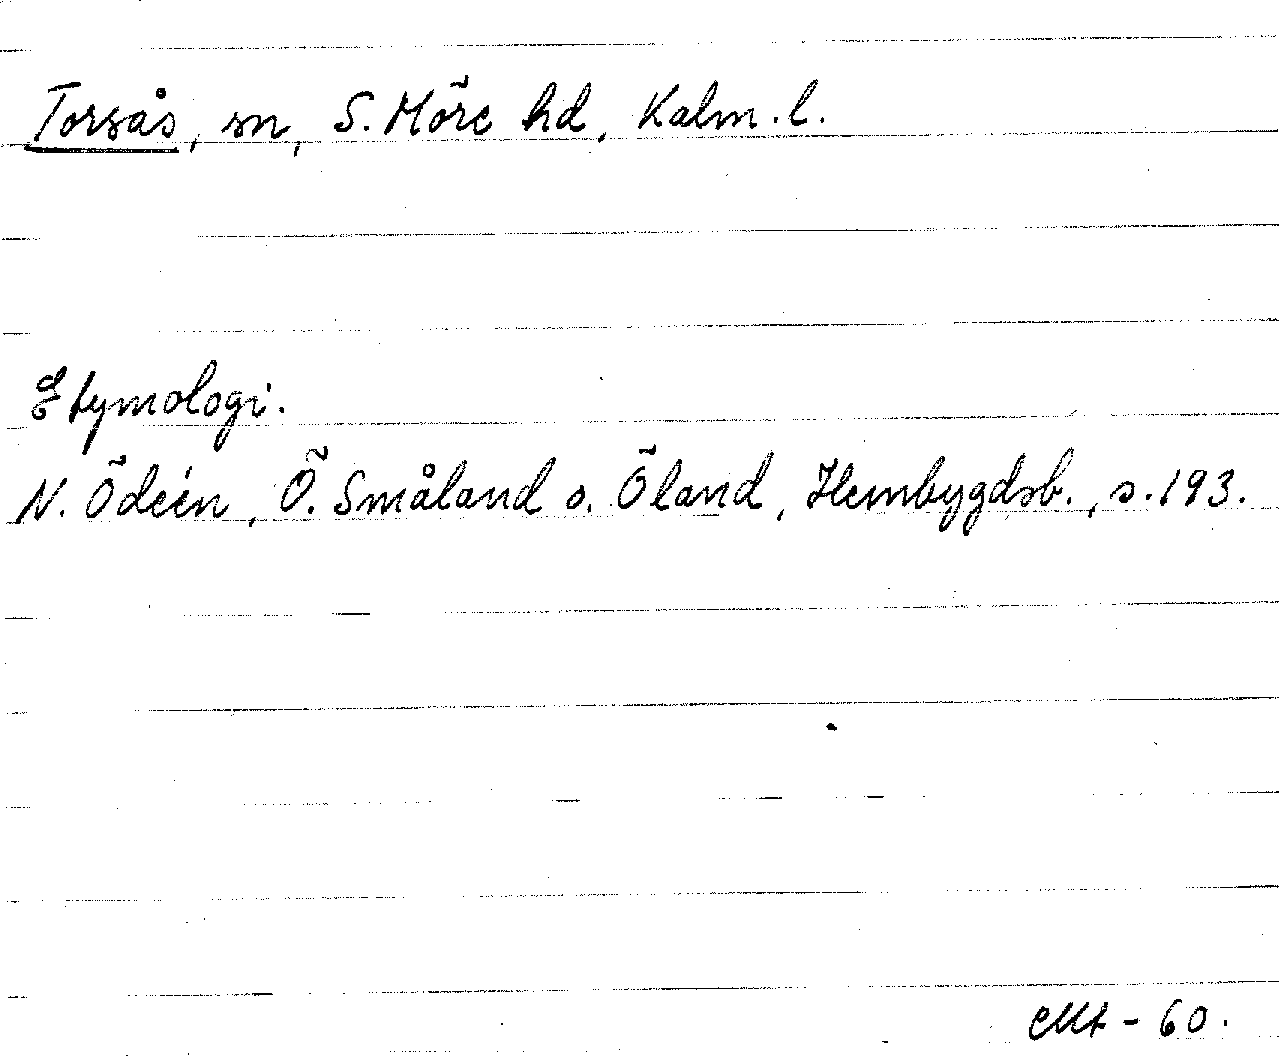 Torsås, sn, S. Möre hd, Kalm. l.
Etymologi.
N. Ödéen, Ö. Småland o. Öland, Hembygdsb., s. 193.
- 60.